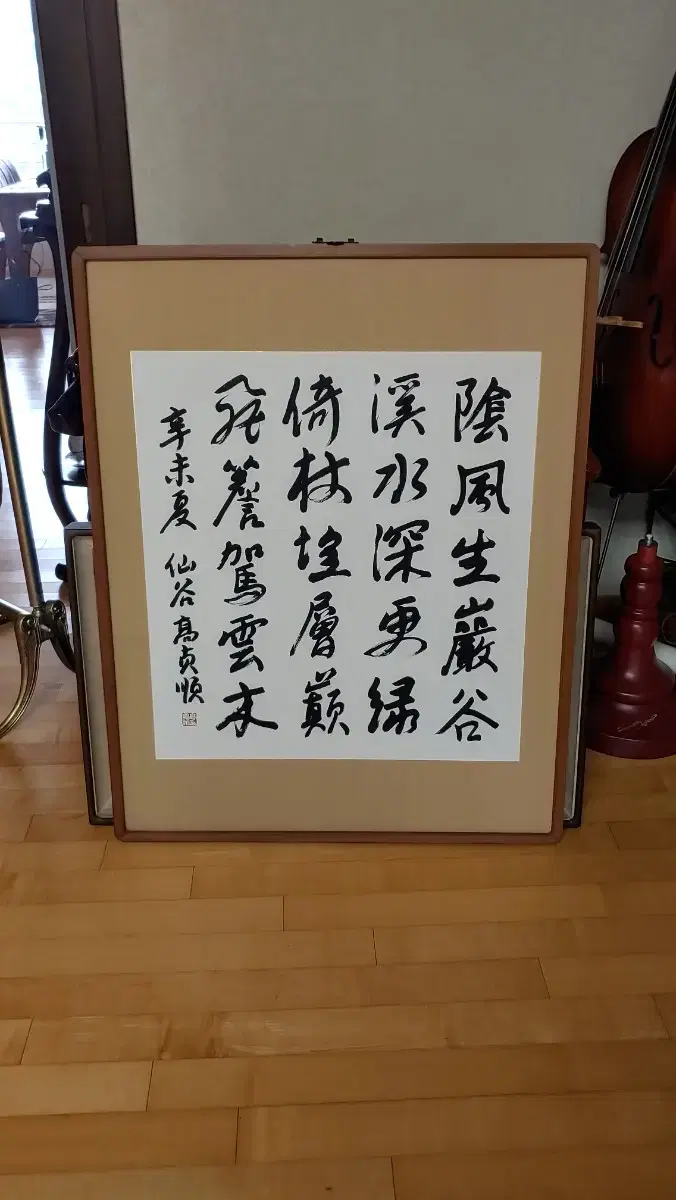 陰風生巖谷
溪水深更綠
倚杖望層巔
飛簷駕雲木
辛未夏 仙谷 高貞順